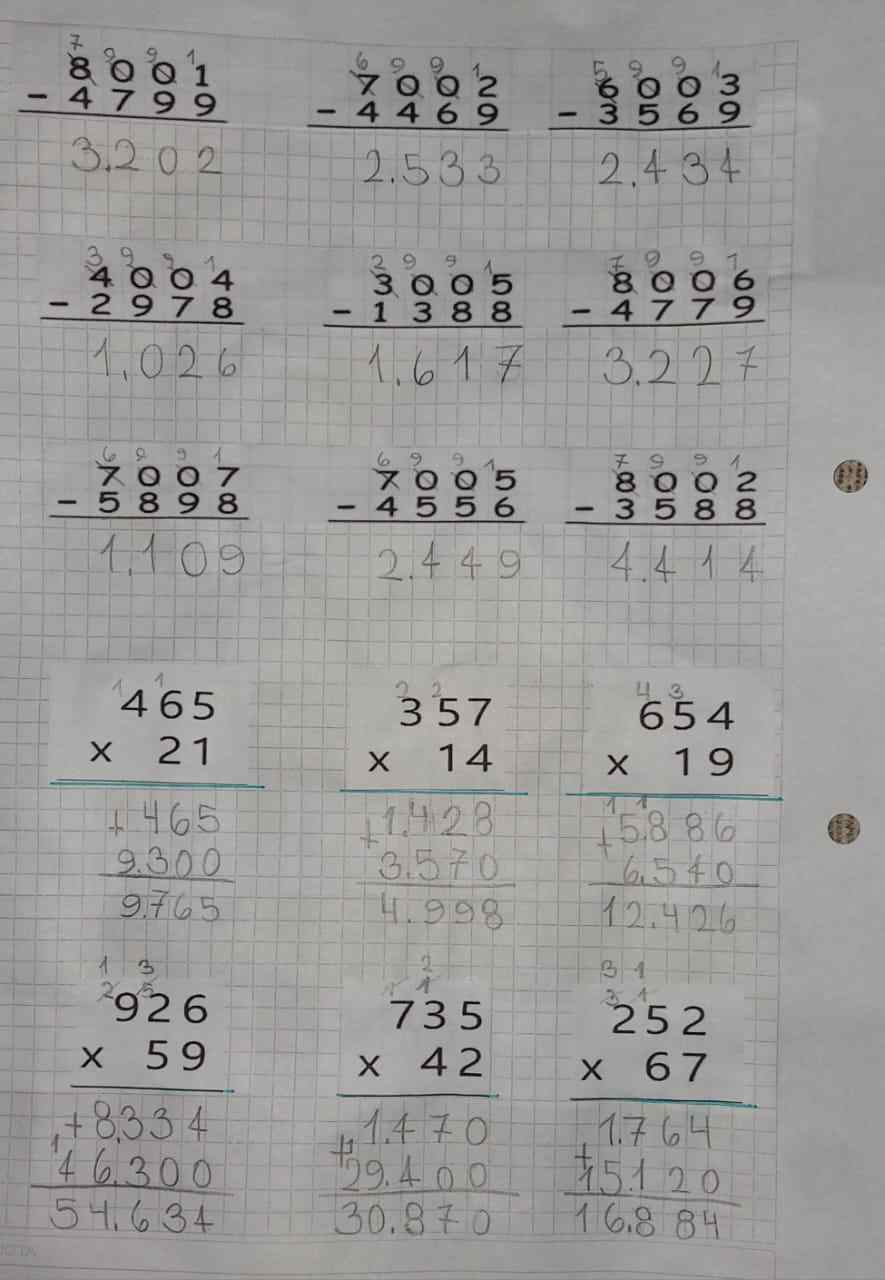 7 9 9 1
8 0 0 1
- 4 7 9 9
3.202
6 9 9 1
7 0 0 2
- 4 4 6 9
2.533
5 9 9 1
6 0 0 3
- 3 5 6 9
2.434
3 9 9 1
4 0 0 4
- 2 9 7 8
1.026
2 9 9 1
3 0 0 5
- 1 3 8 8
1.617
7 9 9 1
8 0 0 6
- 4 7 7 9
3.227
6 9 9 1
7 0 0 7
- 5 8 9 8
1.109
6 9 9 1
7 0 0 5
- 4 5 5 6
2.449
7 9 9 1
8 0 0 2
- 3 5 8 8
4.414
1 1
465
x 21
+ 465
9.300
9.765
2 2
357
x 14
+ 1.428
3.570
4.998
4 3
654
x 19
1 1
+ 5.886
6.540
12.426
1 3
2 5
926
x 59
+ 8.334
1
46.300
54.634
2
1 1
735
x 42
1.470
+
29.400
30.870
3 1
3 1
252
x 67
1.764
+
15.120
16.884